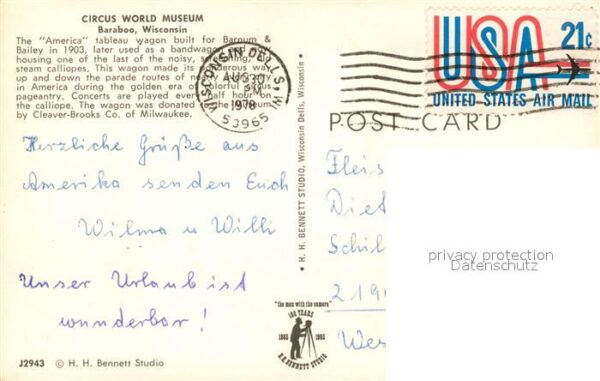 CIRCUS WORLD MUSEUM
Baraboo, Wisconsin
The "America" tableau wagon built for Barnum &
Bailey in 1903, later used as a bandwagon and
housing one of the last of the noisy,
steam calliopes. This wagon made its way
up and down the parade routes of
in America during the golden era of colorful circus
pageantry. Concerts are played every half hour on
the calliope. The wagon was donated museum
by Cleaver-Brooks Co. of Milwaukee.
WISCONSIN DELLS, WI
AUG 30
PM
1978
53965
USA 21c
UNITED STATES AIR MAIL
POST CARD
Herzliche Grüße aus
Amerika senden Euch
Wilma u Willi
Unser Urlaub ist
wunderbar!
H. H. BENNETT STUDIO, Wisconsin Dells, Wisconsin
Fleis
Diet
Schil
219
Wes
privacy protection
Datenschutz
"the man with the camera"
100 YEARS
1865 1965
H.H. BENNETT STUDIO
J2943 © H. H. Bennett Studio